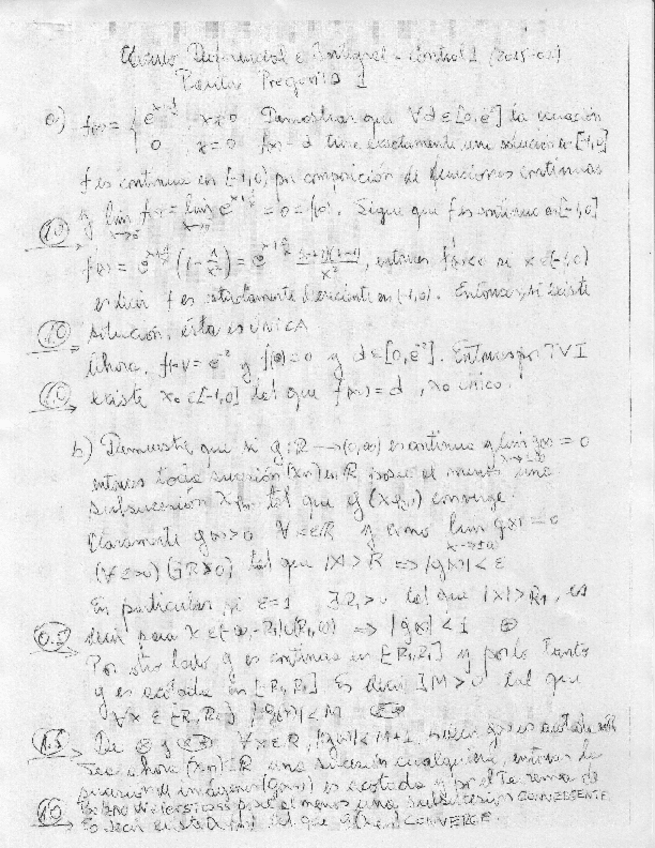 Cálculo Diferencial e Integral - Control 1 (2015-02)
Pauta Pregunta 1
a) f(x) = { e^{x+1/x}, x≠0 Demostrar que ∀d∈[0,e^{-2}] la ecuación
0, x=0 f(x)=d tiene exactamente una solución en [-1,0]
f es continua en [-1,0) por composición de funciones continuas
y lim f(x) = lim e^{x+1/x} = 0 = f(0). Sigue que f es continua en [-1,0]
1.0
f'(x) = e^{x+1/x} (1 - 1/x²) = e^{x+1/x} (x+1)(x-1)/x², entonces f'(x)<0 si x∈(-1,0)
es decir f es estrictamente decreciente en (-1,0). Entonces, si existe
1.0 solución, ésta es ÚNICA
Ahora, f(-1) = e^{-2} y f(0) = 0 y d∈[0,e^{-2}]. Entonces por TVI
1.0 existe x₀∈[-1,0] tal que f(x₀) = d, x₀ único.
b) Demuestre que si g: R → (0,∞) es continua y lim g(x) = 0
entonces toda sucesión (xn) en R posee al menos una
subsucesión tal que g( ) converge.
Claramente g(x)>0 ∀x∈R y como lim g(x) = 0
x→±∞
(∀ε>0)(∃R>0) tal que |x|>R ⟹ |g(x)|<ε
En particular si ε=1 ∃R₁>0 tal que |x|>R₁, es
0.5 decir para x∈(-∞,-R₁)∪(R₁,∞) ⟹ |g(x)|<1
Por otro lado g es continua en [-R₁,R₁] y por lo tanto
g es acotada en [-R₁,R₁]. Es decir ∃M>0 tal que
∀x∈[-R₁,R₁] |g(x)|<M
1.5 De y ∀x∈R, |g(x)|<M+1, es decir g es acotada en R
Sea ahora (xn)⊂R una sucesión cualquiera, entonces la
sucesión de imágenes (g(xn)) es acotada y por el Teorema de
1.0 Weierstrass posee al menos una subsucesión CONVERGENTE
Es decir existe tal que CONVERGE.